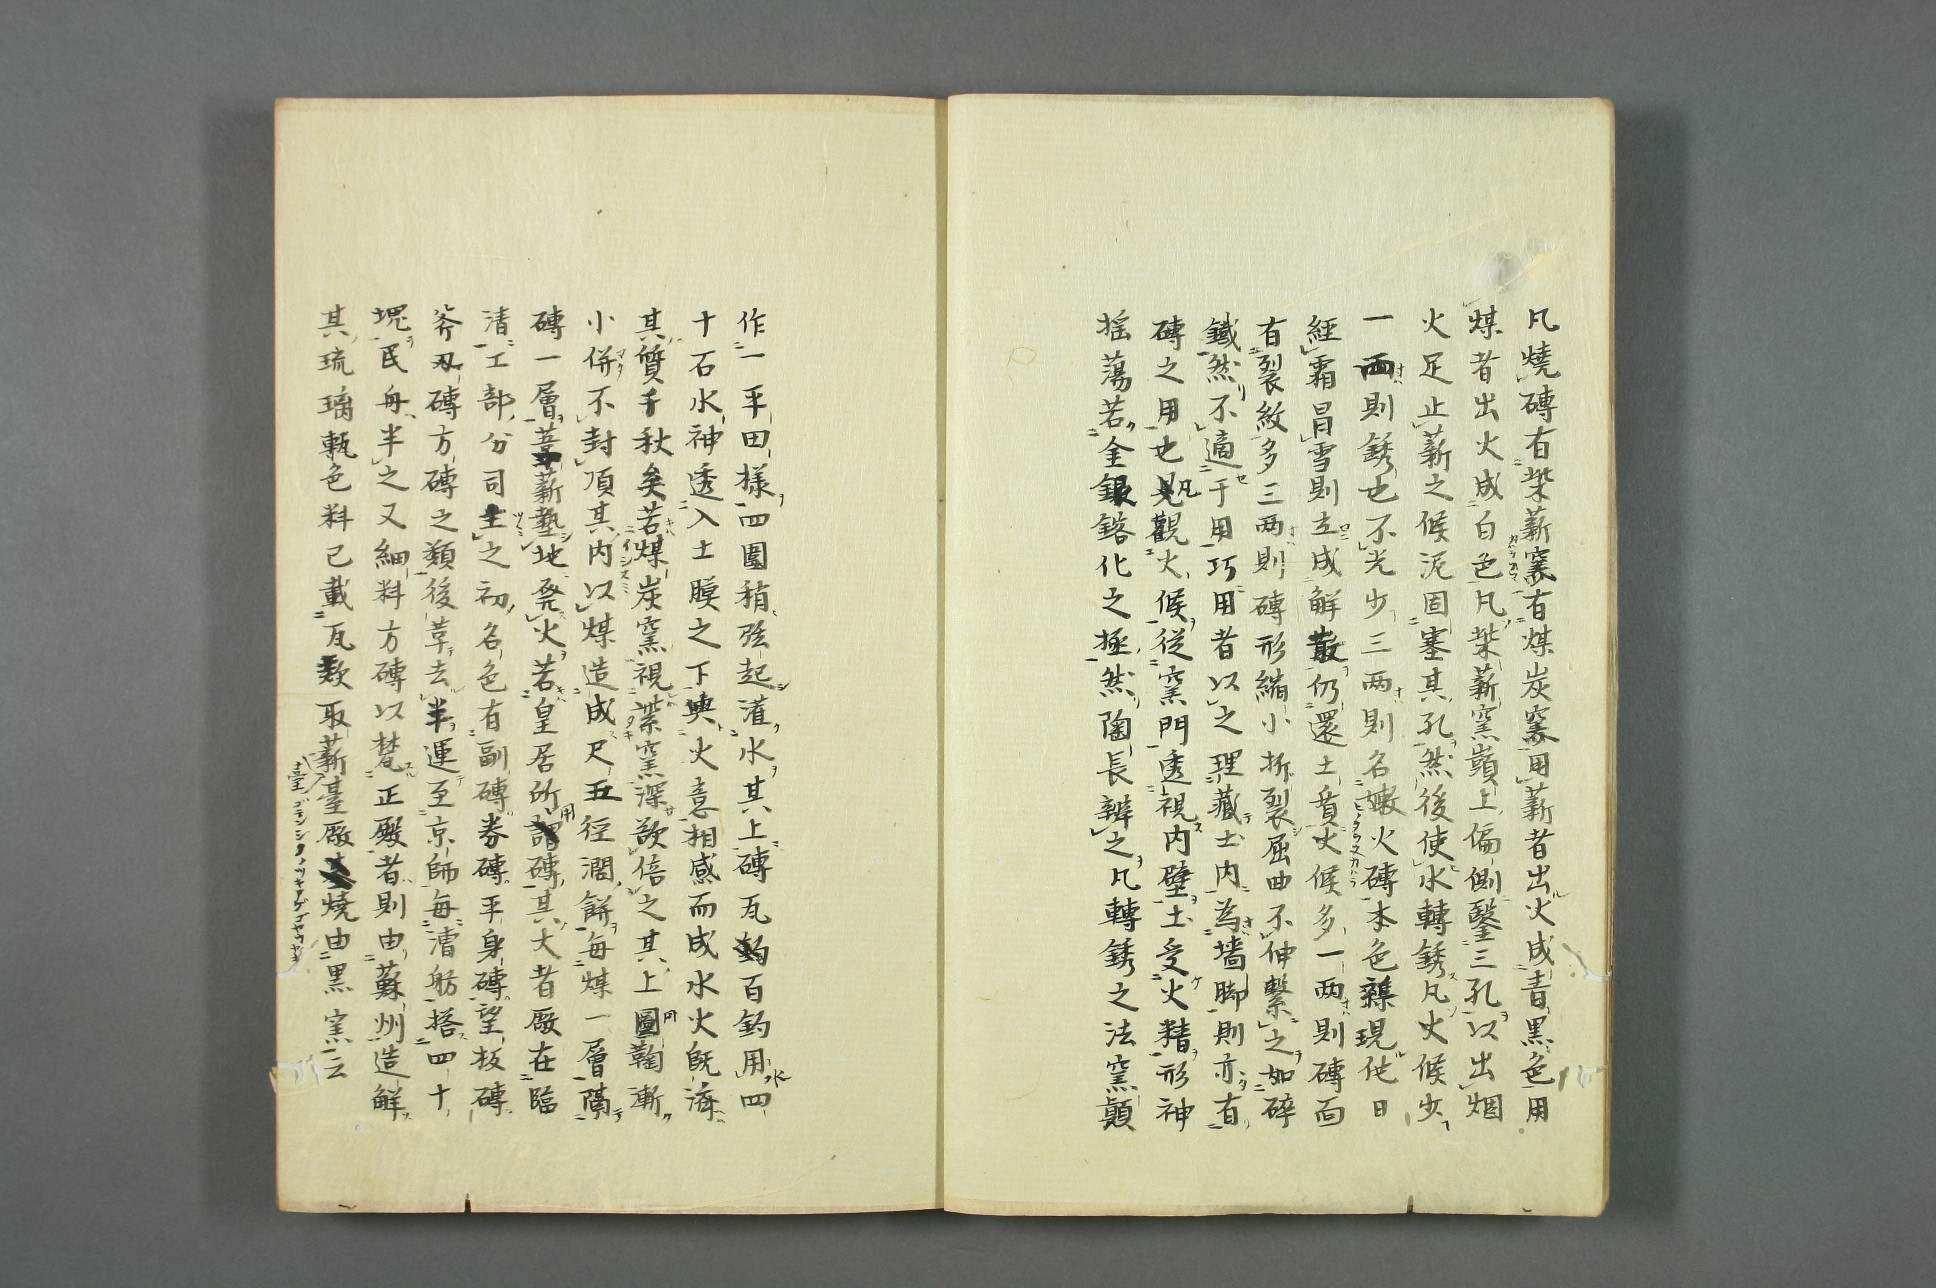 凡燒磚有柴薪窯有煤炭窯用薪者出火成青黑色用
煤者出火成白色凡柴薪窯巓上偏側鑿三孔以出烟
火足止薪之候泥固塞其孔然後使水轉銹凡火候少
一兩則銹也不光少三兩則名嫩火磚本色雜現他日
經霜冒雪則立成解散仍還土質火候多一兩則磚面
有裂紋多三兩則磚形縮小拆裂屈曲不伸擊之如碎
鐵然不適于用巧用者以之理藏土内為墻脚則亦有
磚之用也凡觀火候從窯門透視内壁土受火精形神
揺蕩若金銀鎔化之極然陶長辨之凡轉銹之法窯顛
作一平田樣四圍稍弦起灌水其上磚瓦百鈞用水四
十石水神透入土膜之下與火意相感而成水火既濟
其質千秋矣若煤炭窯視柴窯深欲倍之其上圓鞠漸
小併不封頂其内以煤造成尺五徑濶餅每煤一層隔
磚一層葦薪墊地發火若皇居所用磚其大者厰在臨
清工部分司主之初名色有副磚券磚平身磚望板磚
斧刃磚方磚之類後革去半運至京師每漕舫搭四十
塊民舟半之又細料方磚以甃正殿者則由蘇州造解
其琉璃甎色料已載瓦欵取薪臺厰燒由黑窯云